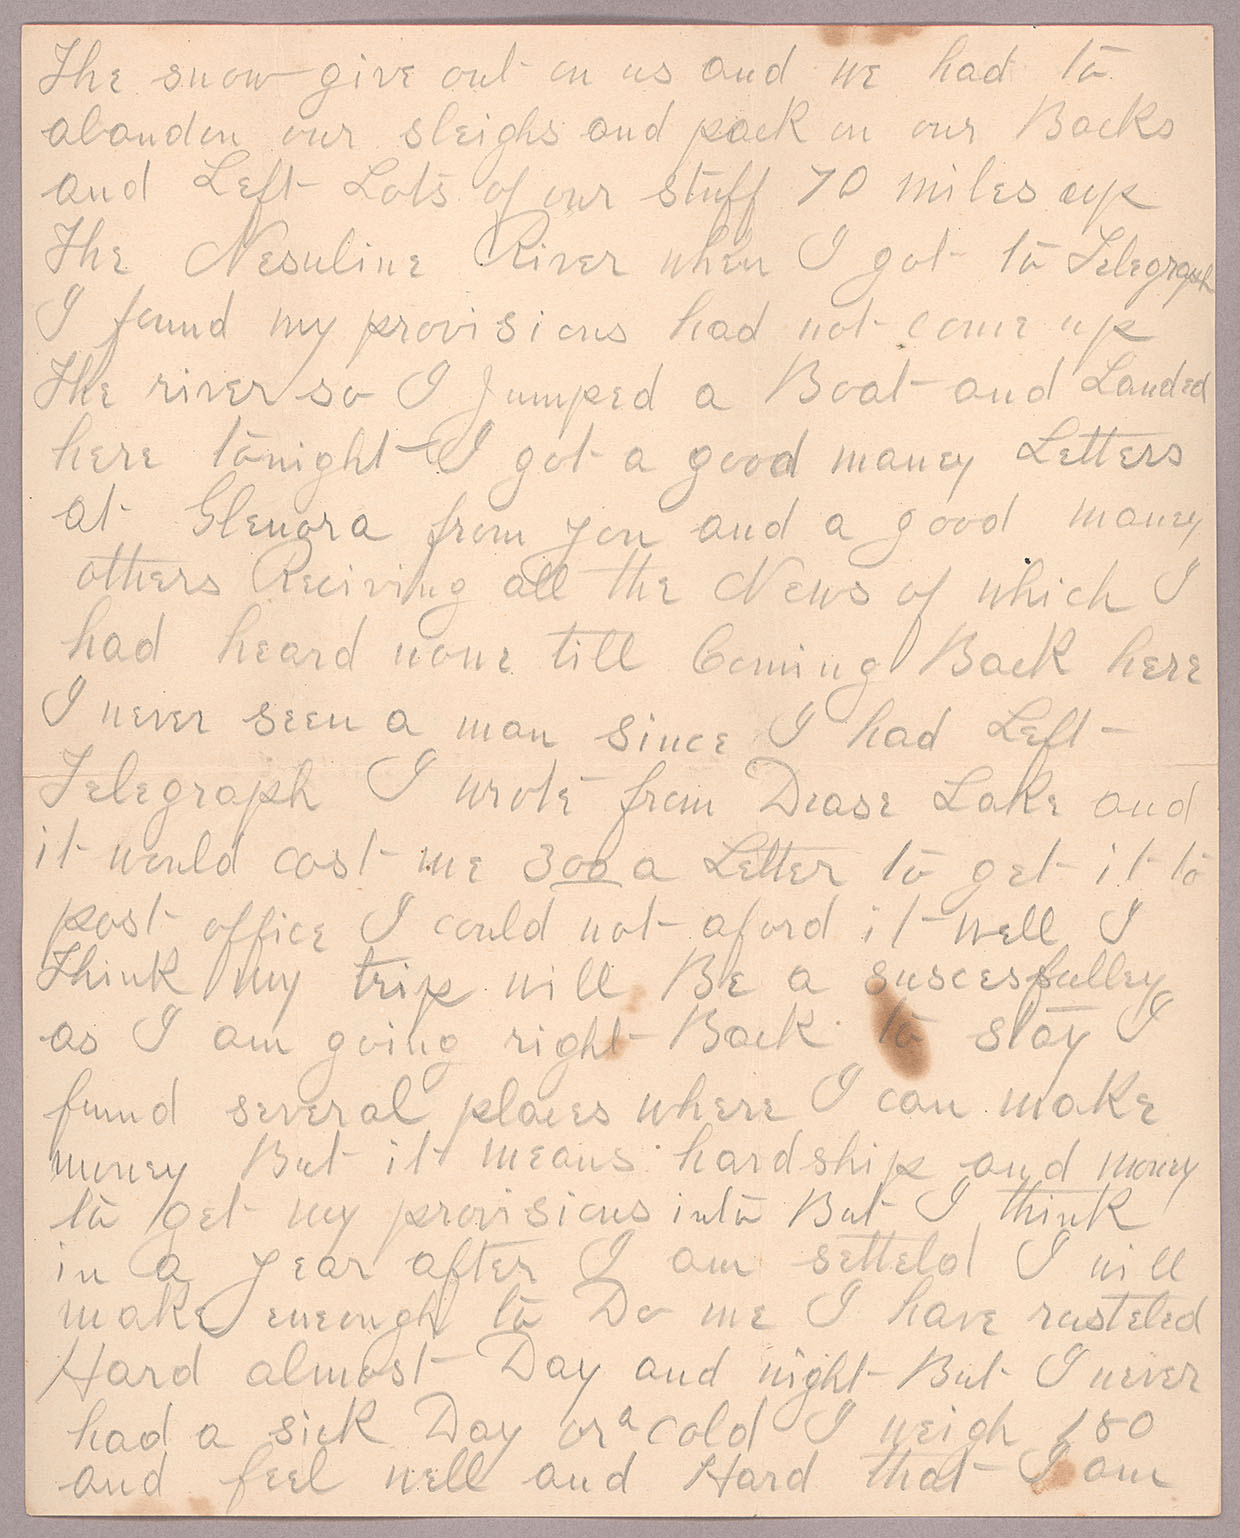 The snow give out on us and we had to
abandon our sleighs and pack on our Backs
and Left Lots of our stuff 70 miles up
The Nesuline River when I got to Telegraph
I found my provisions had not come up
The river so I Jumped a Boat and Landed
here tonight I got a good maney Letters
at Glenora from you and a good maney
others Reciving all the News of which I
had heard none till Coming Back here
I never seen a man since I had Left
Telegraph I wrote from Dease Lake and
it would cost me 300 a Letter to get it to
post office I could not aford it well I
Think my trip will Be a suscesfulley
as I am going right Back to stay I
fund several places where I can make
money But it means hardship and money
to get my provisions into But I think
in a year after I am setteld I will
make eneough to Do me I have rusteled
Hard almost Day and night But I never
had a sick Day or a cold I weigh 180
and feel well and Hard that I am